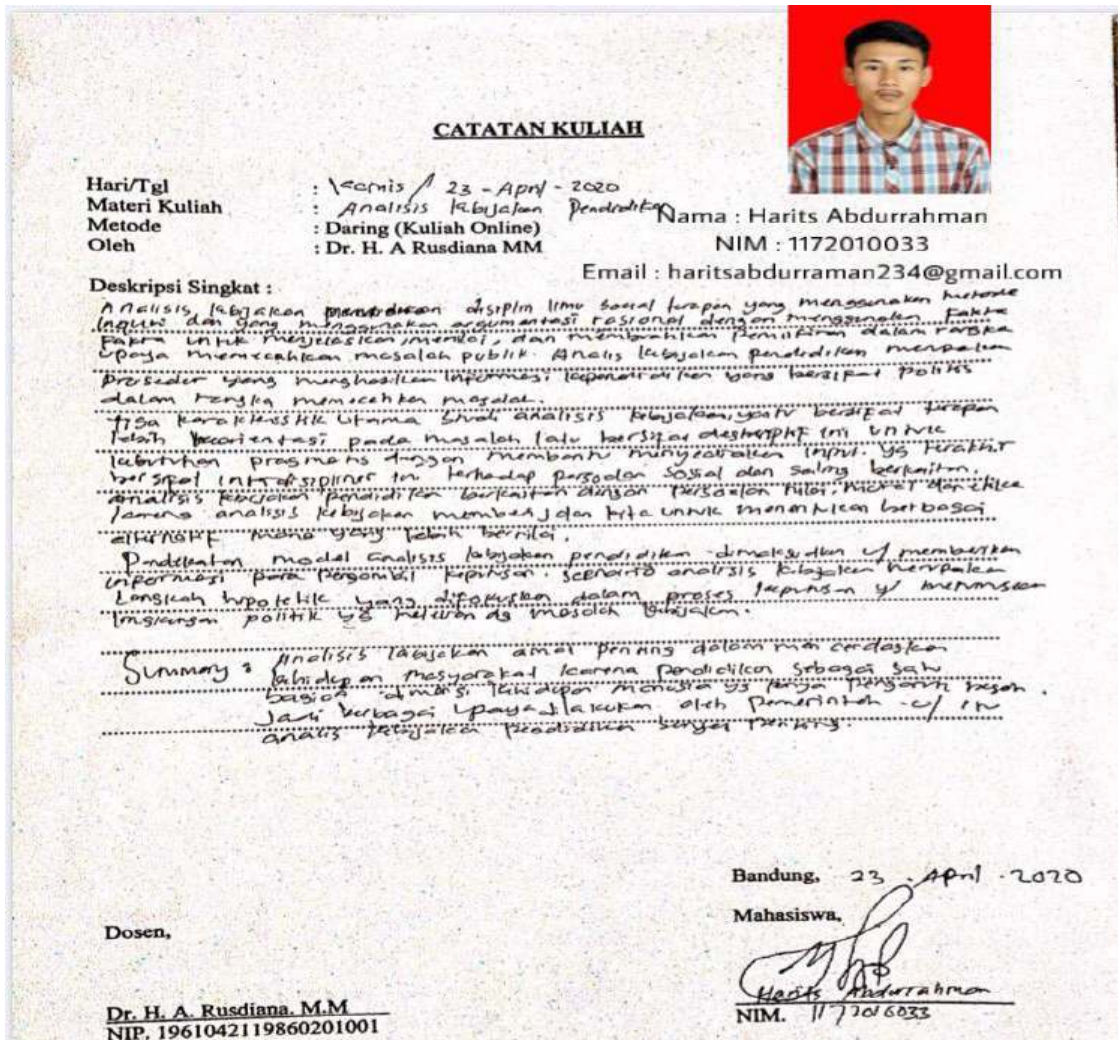 CATATAN KULIAH
Hari/Tgl : Kamis / 23 - April - 2020
Materi Kuliah : Analisis kebijakan Pendidikan
Metode : Daring (Kuliah Online)
Oleh : Dr. H. A Rusdiana MM
Nama : Harits Abdurrahman
NIM : 1172010033
Email : haritsabdurraman234@gmail.com
Deskripsi Singkat :
Analisis kebijakan disiplin ilmu sosial terapan yang menggunakan metode
inquiri dan yang menggunakan argumentasi rasional dengan menggunakan fakta
fakta untuk menjelaskan, menilai, dan membuahkan pemikiran dalam rangka
upaya memecahkan masalah publik. Analis kebijakan pendidikan merupakan
prosedur yang menghasilkan informasi kependidikan yang bersifat politis
dalam rangka memecahkan masalah.
tiga karakteristik utama studi analisis kebijakan, yaitu bersifat terapan
lebih berorientasi pada masalah lalu bersifat deskriptif ini untuk
kebutuhan pragmatis dengan membantu input. yg terakhir
bersifat interdisipliner terhadap persoalan sosial dan saling berkaitan.
analisis kebijakan pendidikan berkaitan dengan persoalan nilai, moral dan etika
karena analisis kebijakan kita untuk menentukan berbagai
alternatif mana yang lebih bernilai.
Pendekatan model analisis kebijakan pendidikan dimaksudkan u/ memberikan
informasi para pengambil keputusan. Scenario analisis kebijakan merupakan
Langkah hipotetik yang difokuskan dalam proses keputusan u/ merumuskan
politik yg relevan dg masalah kebijakan.
Summary : Analisis kebijakan amat penting dalam mencerdaskan
kehidupan masyarakat karena pendidikan sebagai satu
bagian dimensi kehidupan manusia yg punya pengaruh besar.
Jadi berbagai upaya dilakukan oleh pemerintah u/
analis kebijakan pendidikan sangat penting.
Bandung, 23 - April - 2020
Mahasiswa,
Dosen,
Harits Abdurrahman
Dr. H. A. Rusdiana. M.M
NIM. 1172010033
NIP. 1961042119860201001